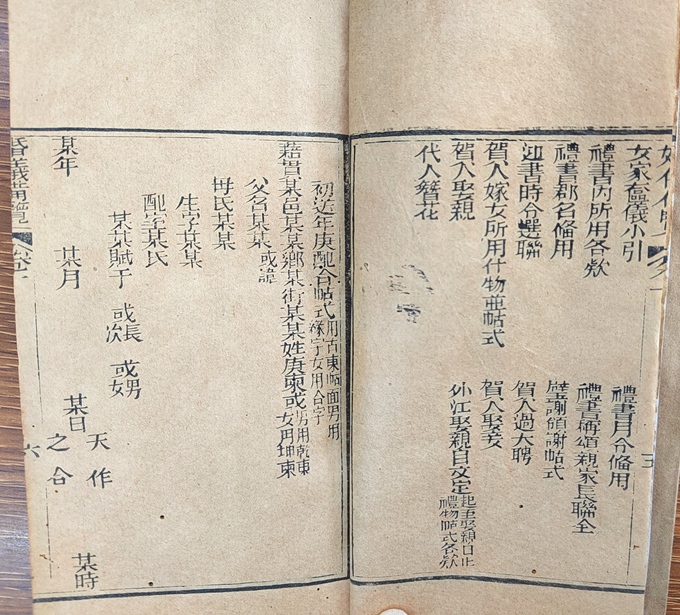 女家奩儀小引
禮書月令備用
禮書內所用各欵
禮書稱頌親家長聯全
禮書郡名備用
璧謝領謝帖式
迎書時令選聯
賀人過大聘
賀人嫁女所用什物亜帖式
賀人娶妾
賀人娶親
外江娶親自文定起至娶親日止禮物帖式各欵
代人簪花
五
初送年庚配合帖式用古柬帖面男用緣字女用合字
籍貫某邑某鄉某街某某姓庚柬或男用乾柬女用坤柬
父名某某或諱
母氏某某
生字某某
配字某氏
某某賦于 或長 或次 或男 或女
某年 某月 某日 某時
天作之合
昏義備覽
六